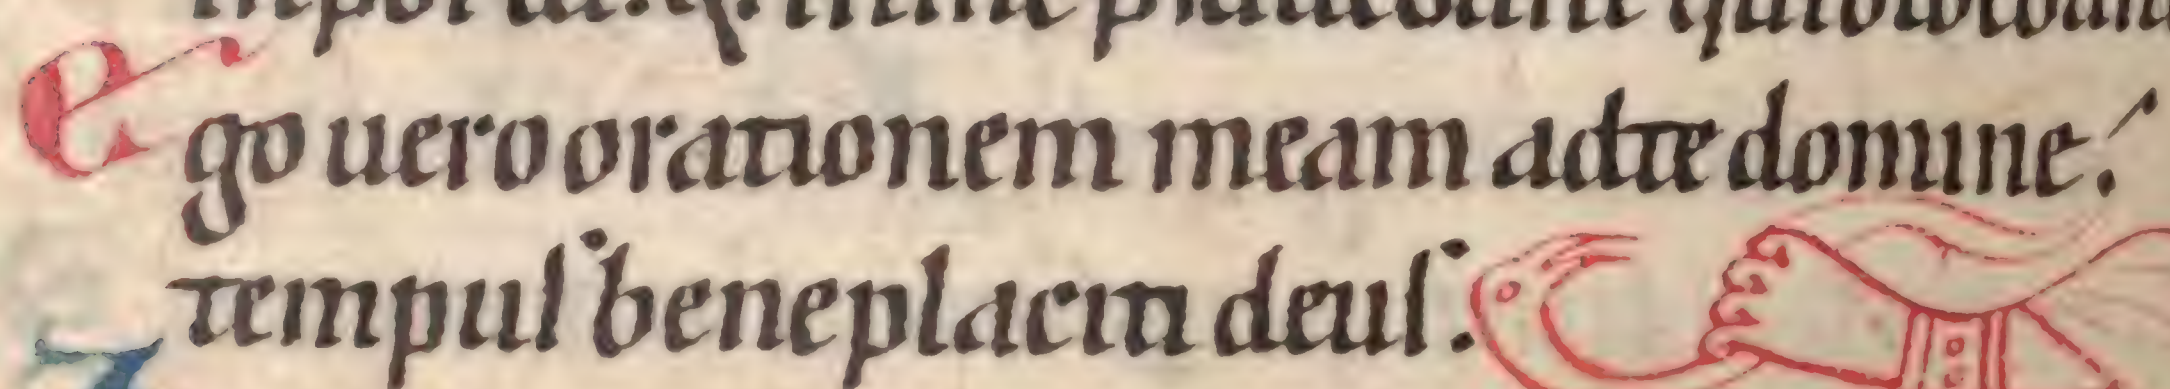 ego uero orationem meam ad te domine.
tempus beneplaciti deus.